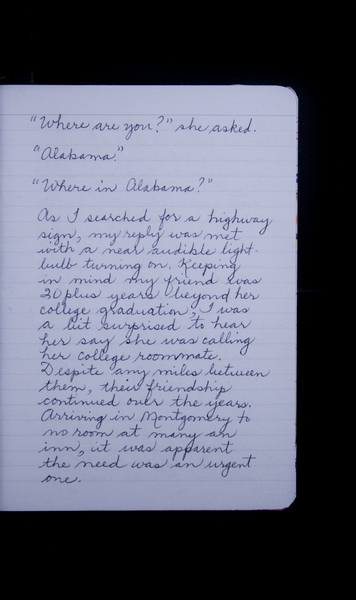 "Where are you?" she asked.
"Alabama."
"Where in Alabama?"
As I searched for a highway
sign, my reply was met
with a near audible light-
bulb turning on. Keeping
in mind my friend was
20 plus years beyond her
college graduation, I was
a bit surprised to hear
her say she was calling
her college roommate.
Despite any miles between
them, their friendship
continued over the years.
Arriving in Montgomery to
no room at many an
inn, it was apparent
the need was an urgent
one.